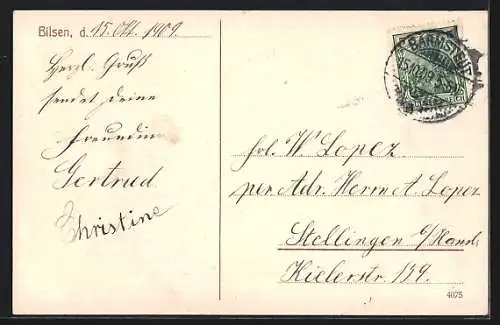 Bilsen, d. 15. Okt. 1909.
Herzl. Gruß
sendet deine
Freundin
Gertrud
Christine
BARMSTEDT
frl. W. Lopez
per Adr. Herrn A. Lopez
Stellingen b/Hamb.
Kielerstr. 159.
4075